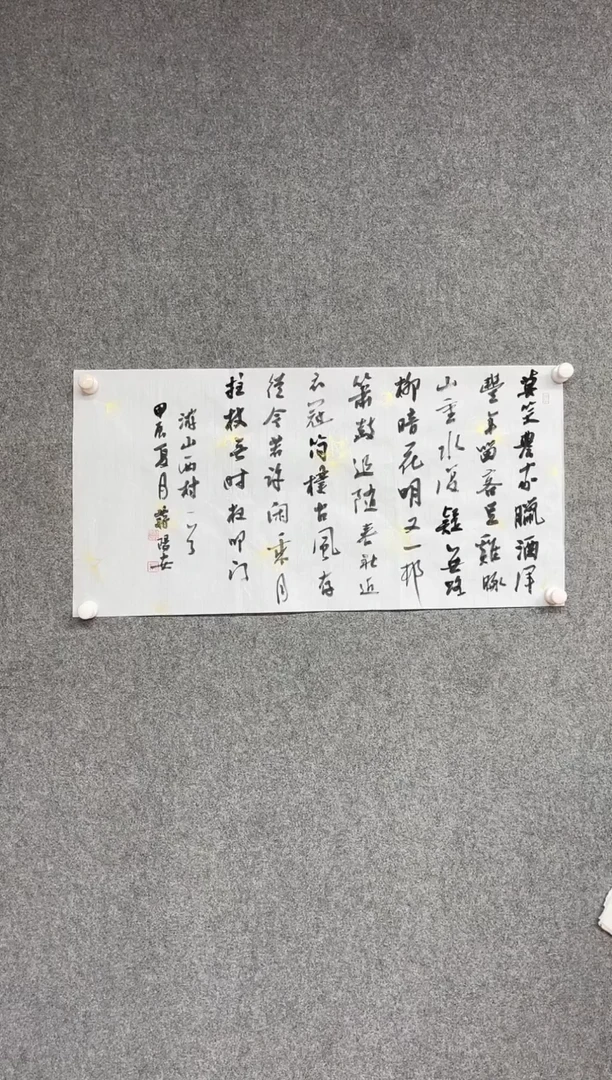 莫笑農家臘酒渾
豐年留客足雞豚
山重水復疑無路
柳暗花明又一邨
簫鼓追随春社近
衣冠简樸古風存
從今若许闲乘月
拄杖無时夜叩门
游山西村一首
甲辰夏月